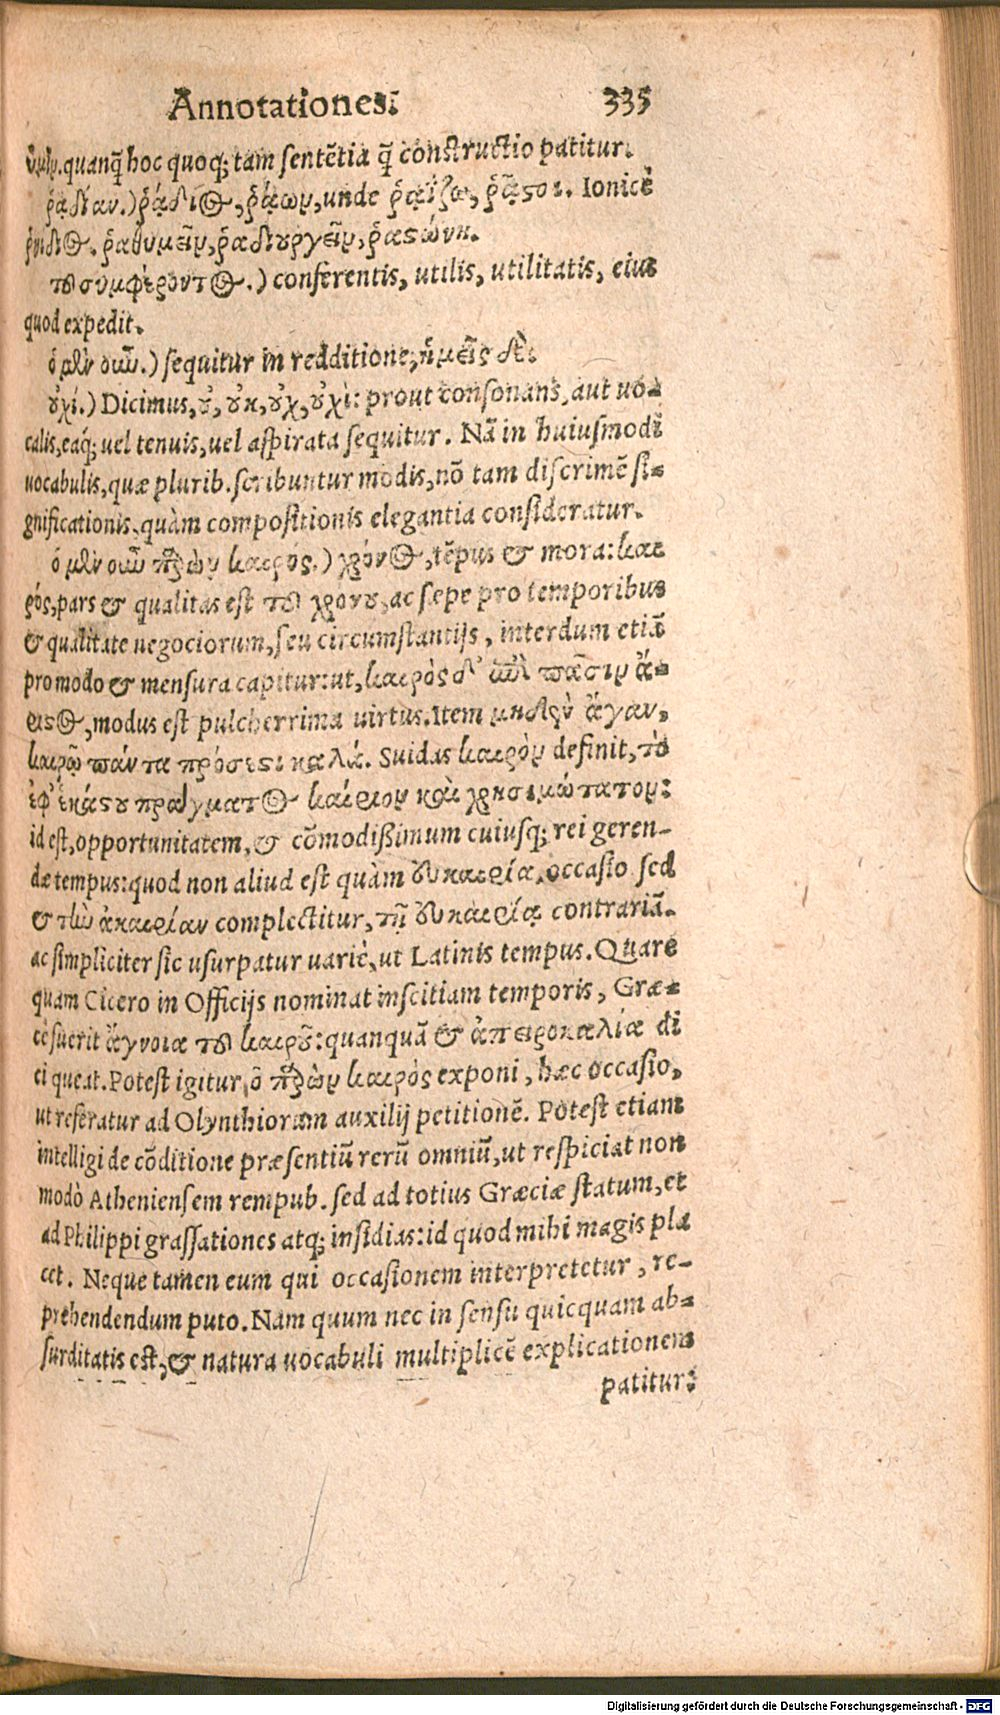 Annotationes. 335
ὑμῖν. quanq̃ hoc quoq; tam sentẽtia q̃ constructio patitur.
ῥᾳδίαν.) ῥᾴδιος, ῥᾴων, unde ῥᾳΐζω, ῥᾷστοι. Ionicè
ῥηίδιος. ῥαθυμεῖν, ῥαδιουργεῖν, ῥαστώνη.
τοῦ συμφέροντος.) conferentis, utilis, utilitatis, eius
quod expedit.
ὁ μὲν οὖν.) sequitur in redditione, ἡμεῖς δὲ.
οὐχί.) Dicimus, οὐ, οὐκ, οὐχ, οὐχὶ: prout consonans, aut uo-
calis, eaq́; uel tenuis, uel aspirata sequitur. Nã in huiusmodi
uocabulis, quæ plurib. scribuntur modis, nõ tam discrimẽ si-
gnificationis, quàm compositionis elegantia consideratur.
ὁ μὲν οὖν παρὼν καιρός.) χρόνος, tẽpus & mora: και
ρός, pars & qualitas est τοῦ χρόνου, ac sæpe pro temporibus
& qualitate negociorum, seu circumstantijs, interdum etiã
pro modo & mensura capitur: ut, καιρὸς δ' ἐπὶ πᾶσιν ἄ-
ριστος, modus est pulcherrima uirtus. Item μηδὲν ἄγαν,
καιρῷ πάντα πρόσεστι καλά. Suidas καιρὸν definit, τὸ
ἐφ' ἑκάστου πράγματος καίριον καὶ χρησιμώτατον:
id est, opportunitatem, & cõmodißimum cuiusq; rei geren-
dæ tempus: quod non aliud est quàm εὐκαιρία, occasio sed
& τὴν ἀκαιρίαν complectitur, τῇ εὐκαιρίᾳ contrariã.
ac simpliciter sic usurpatur uariè, ut Latinis tempus. Quare
quam Cicero in Officijs nominat inscitiam temporis, Græ-
cè fuerit ἄγνοια τοῦ καιροῦ: quanquã & ἀπειροκαλία di
ci queat. Potest igitur, ὁ παρὼν καιρὸς exponi, hæc occasio,
ut referatur ad Olynthiorum auxilij petitionẽ. Potest etiam
intelligi de cõditione præsentiũ rerũ omniũ, ut respiciat non
modò Atheniensem rempub. sed ad totius Græciæ statum, et
ad Philippi grassationes atq; insidias: id quod mihi magis pla
cet. Neque tamen eum qui occasionem interpretetur, re-
prehendendum puto. Nam quum nec in sensu quicquam ab-
surditatis est, & natura uocabuli multiplicẽ explicationem
patitur:
Digitalisierung gefördert durch die Deutsche Forschungsgemeinschaft - DFG